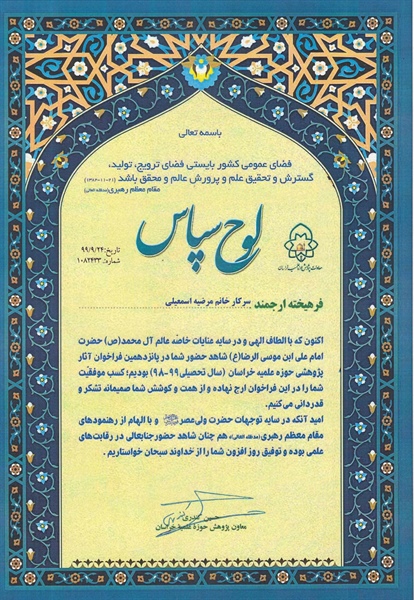 باسمه تعالی
فضای عمومی کشور بایستی فضای ترویج، تولید،
گسترش و تحقیق علم و پرورش عالم و محقق باشد
مقام معظم رهبری (مدظله العالی)
لوح سپاس
تاریخ: ۹۹/۹/۲۴
شماره: ۱۰۸۲۴۳۳
فرهیخته ارجمند سرکار خانم مرضیه اسمعیلی
اکنون که با الطاف الهی و در سایه عنایات خاصه عالم آل محمد(ص) حضرت
امام علی ابن موسی الرضا(ع) شاهد حضور شما در پانزدهمین فراخوان آثار
پژوهشی حوزه علمیه خراسان (سال تحصیلی ۹۹-۹۸) بودیم؛ کسب موفقیت
شما را در این فراخوان ارج نهاده و از همت و کوشش شما صمیمانه تشکر و
قدردانی می‌کنیم.
امید آنکه در سایه توجهات حضرت ولی‌عصر و با الهام از رهنمودهای
مقام معظم رهبری (مدظله العالی)، هم چنان شاهد حضور جنابعالی در رقابت‌های
علمی بوده و توفیق روز افزون شما را از خداوند سبحان خواستاریم.
حسین
معاون پژوهش حوزه علمیه خراسان